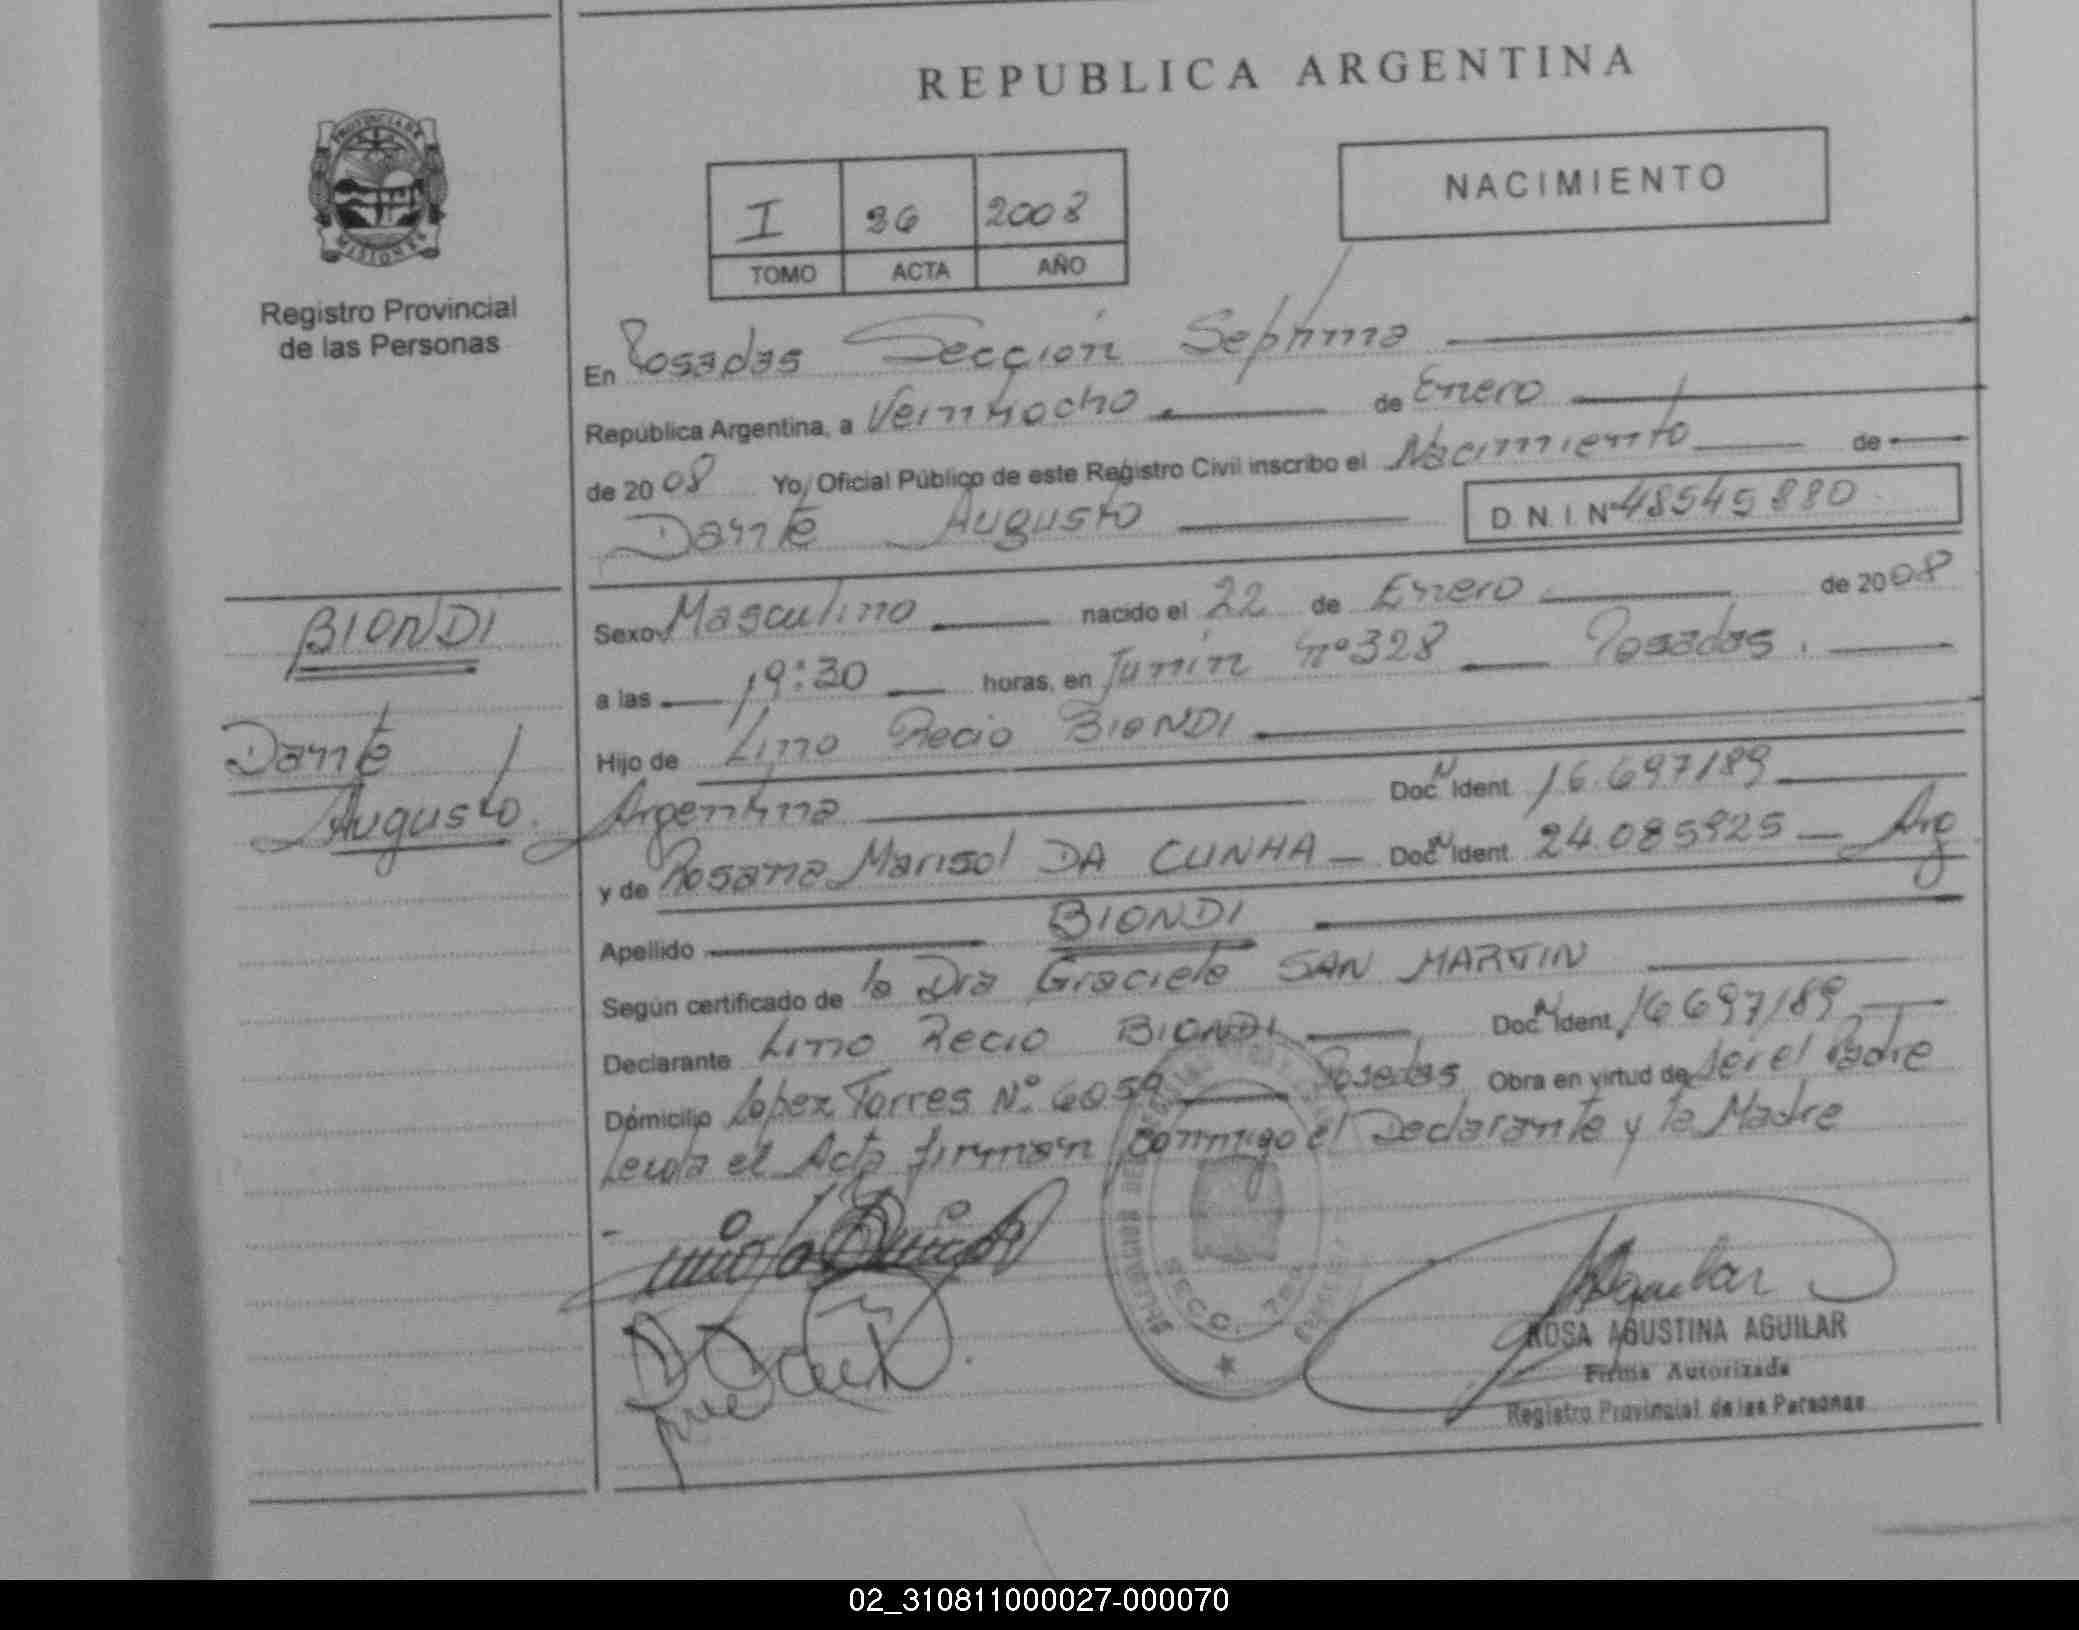 REPUBLICA ARGENTINA
PROVINCIA DE
MISIONES
Registro Provincial
de las Personas
NACIMIENTO
I 36 2008
TOMO ACTA AÑO
En Posadas Sección Septima
República Argentina, a Veintiocho de Enero
de 2008 Yo, Oficial Público de este Registro Civil inscribo el Nacimiento de
Dante Augusto D.N.I Nº 48545880
BIONDI
Dante
Augusto.
Sexo Masculino nacido el 22 de Enero de 2008
a las 19:30 horas, en Junín nº 328 Posadas.
Hijo de Lino Recio BIONDI
Argentina Doc N Ident 16.697189
y de Rosana Marisol DA CUNHA Doc N Ident 24.085925 Arg
Apellido BIONDI
Según certificado de la Dra Graciela SAN MARTIN
Declarante Lino Recio BIONDI Doc N Ident 16697189
Domicilio Lopez Torres Nº 6059 Posadas Obra en virtud de ser el Padre
Leida el Acta firman conmigo el Declarante y la Madre
SECC. 7ma
Aguilar
ROSA AGUSTINA AGUILAR
Firma Autorizada
Registro Provincial de las Personas
02_310811000027-000070